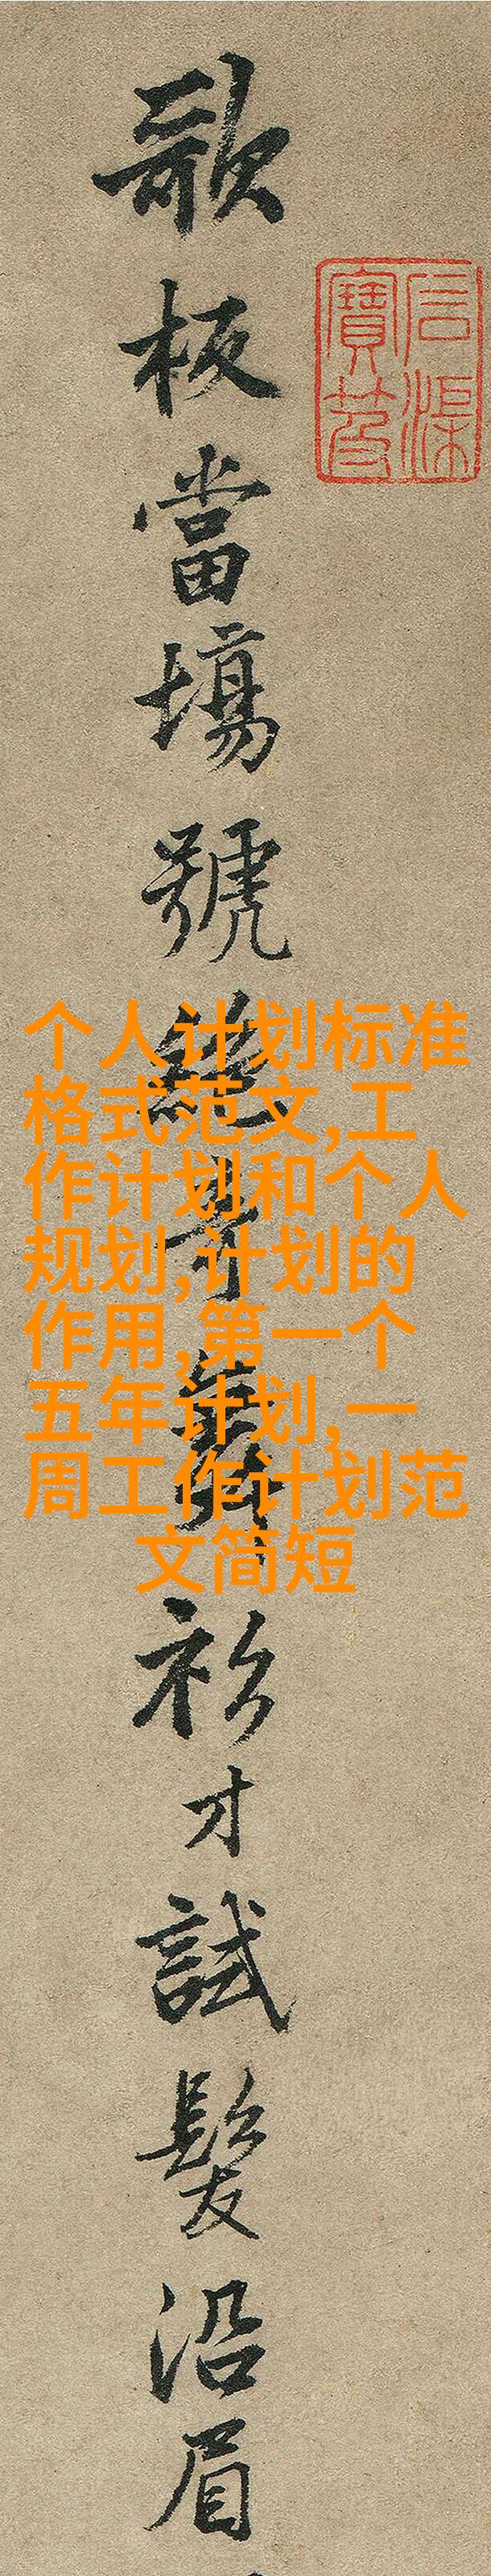 歌板當場號絕奇舞衫才試髮沿眉
石渠
寶笈
个人计划标准
格式范文,工
作计划和个人
规划,计划的
作用,第一个
五年计划,一
周工作计划范
文简短